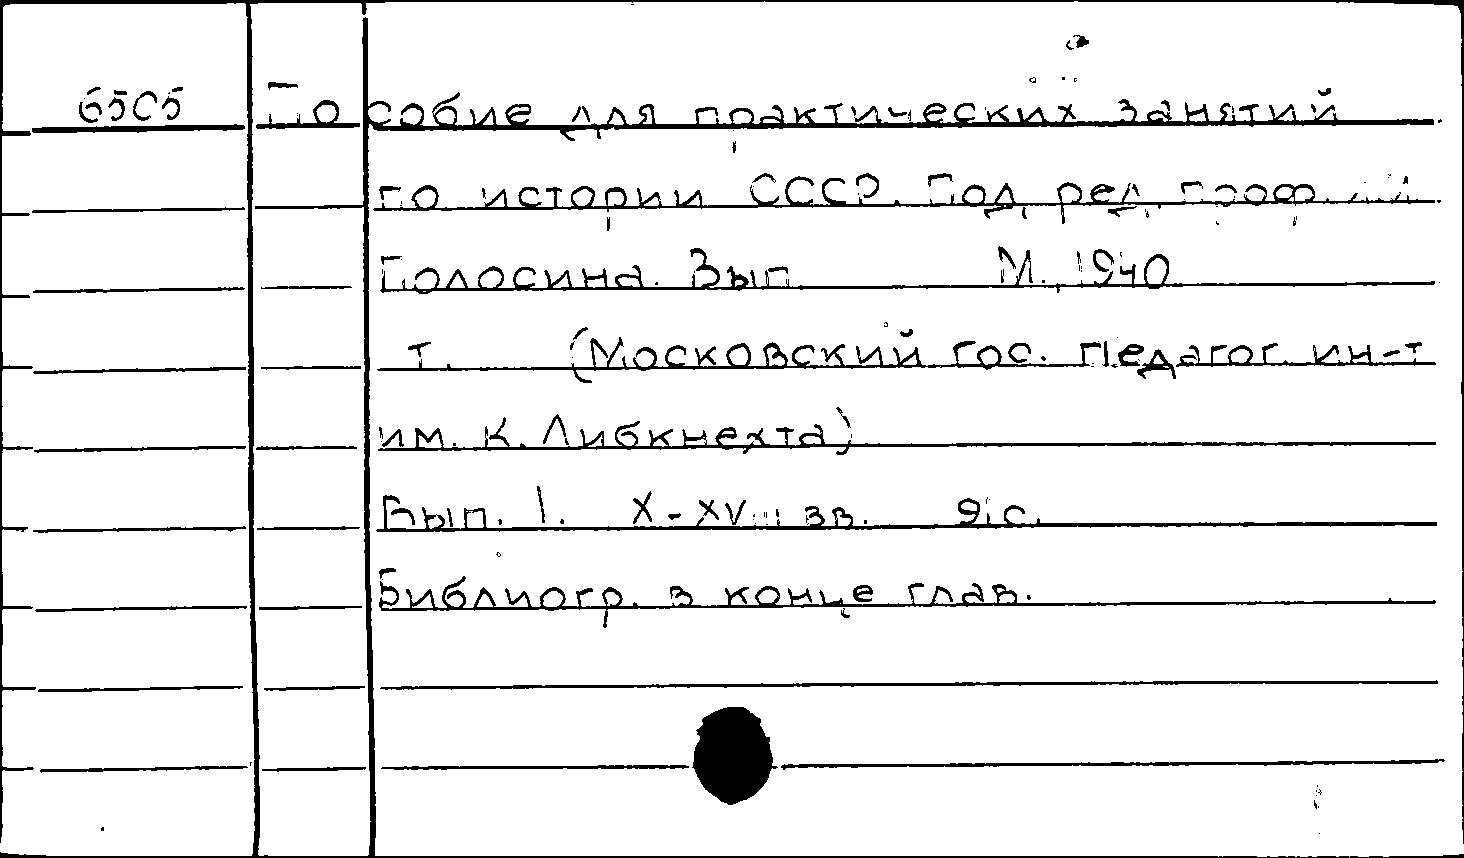 65С5 Пособие для практических занятий
по истории СССР. Под ред. проф.
Полосина. Вып. М., 1940
т. (Московский гос. педагог. ин-т
им. К. Либкнехта)
Вып. 1. X-XVIII вв. с.
Библиогр. в конце глав.